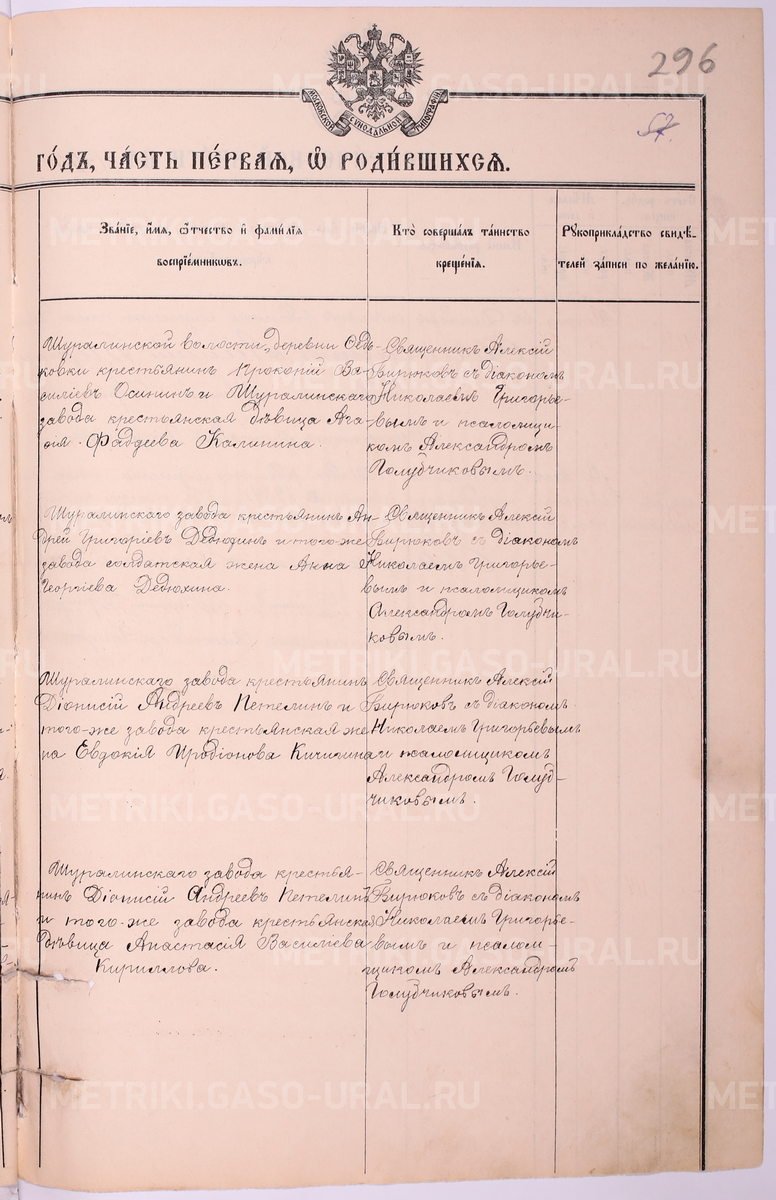 296
57.
МОСКОВСКОЙ СѴНОДАЛЬНОЙ ТИПОГРАФІИ
ГО́ДЪ, ЧА́СТЬ ПЕ́РВАЯ, Ѽ РОДИ́ВШИХСЯ.
Зва́нїе, и҆́мя, ѻ҆́тчество и҆ фами́лїя
воспрїе́мникѡвъ.
Кто̀ соверша́лъ та́инство
креще́нїя.
Рꙋкоприкла́дство свидѣ́-
телей за́писи по жела́нїю.
Шуралинской волости, деревни Ось-
ковки крестьянинъ Прокопій Ва-
силіевъ Осининъ и Шуралинскаго
завода крестьянская дѣвица Ага-
ѳія Фаддеева Калинина.
Священникъ Алексій
Бирюковъ съ діакономъ
Николаемъ Григорье-
вымъ и псаломщи-
комъ Александромъ
Голубчиковымъ.
Шуралинскаго завода крестьянинъ Ан-
дрей Григоріевъ Дедюхинъ и того-же
завода солдатская жена Анна
Георгіева Дедюхина.
Священникъ Алексій
Бирюковъ съ діакономъ
Николаемъ Григорье-
вымъ и псаломщикомъ
Александромъ Голубчи-
ковымъ.
Шуралинскаго завода крестьянинъ
Діонисій Андреевъ Петелинъ и
того-же завода крестьянская же-
на Евдокія Иродіонова Кичигина
Священникъ Алексій
Бирюковъ съ діакономъ
Николаемъ Григорьевымъ
и псаломщикомъ
Александромъ Голуб-
чиковымъ.
Шуралинскаго завода крестья-
нинъ Діонисій Андреевъ Петелинъ
и того-же завода крестьянская
дѣвица Анастасія Василіева
Кириллова.
Священникъ Алексій
Бирюковъ съ діакономъ
Николаемъ Григорье-
вымъ и псалом-
щикомъ Александромъ
Голубчиковымъ.
METRIKI.GASO-URAL.RU